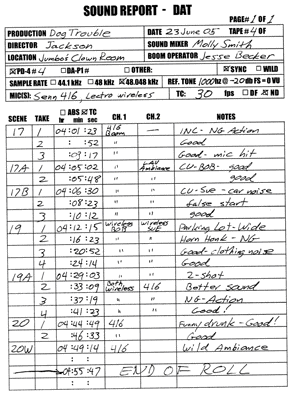 SOUND REPORT - DAT
PAGE# 1 OF 1
PRODUCTION Dog Trouble DATE 23 June 05 TAPE# 4 OF 4
DIRECTOR Jackson SOUND MIXER Molly Smith
LOCATION Jumbo's Clown Room BOOM OPERATOR Jesse Becker
PD-4# 4 DA-P1# OTHER: SYNC WILD
SAMPLE RATE 44.1 kHz 48 kHz 48.048 kHz REF. TONE 1000hz @ -20 FS = 0 VU
MIC(S): Senn 416, Lectro wireless TC: 30 fps DF ND
ABS TC
SCENE TAKE CH.1 CH.2 NOTES
17 1 04:01:23 416 Boom — INC - NG Action
2 :52 " Good
3 :09:17 " Good - mic hit
17A 1 04:05:02 " LAV Ambiance CU-BOB - good
2 :05:48 " " good
17B 1 04:06:30 " " CU-Sue - car noise
2 :08:23 " " false start
3 :10:12 " " good
19 1 04:12:15 wireless BOB wireless SUE Parking Lot - Wide
2 :16:23 " " Horn Honk - NG
3 :20:52 " " Good - clothing noise
4 :24:14 " " Good
19A 1 04:29:03 " " 2-shot
2 :33:09 Both wireless 416 Better sound
3 :37:19 " " NG-Action
4 :41:23 " " Good!
20 1 04:44:49 416 Funny drunk - Good!
2 :46:33 " Good
20W 04:49:14 416 Wild Ambiance
: :
04:55:47 END OF ROLL
: :